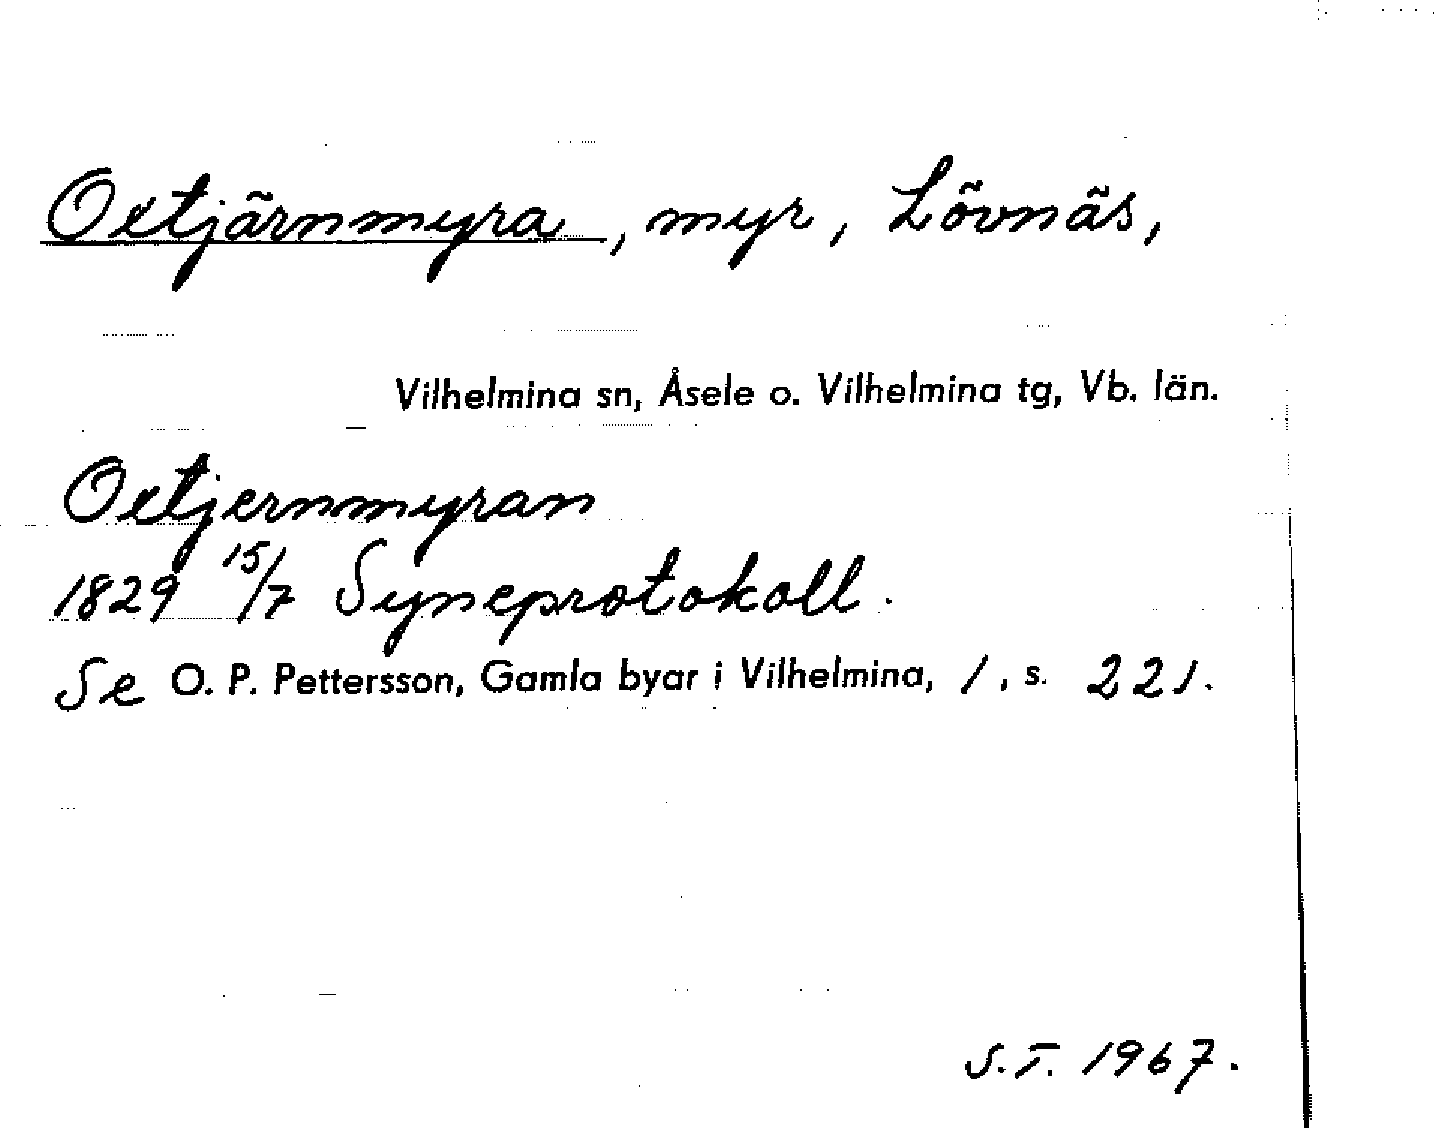 Oxtjärnmyra, myr, Lövnäs,
Vilhelmina sn, Åsele o. Vilhelmina tg, Vb. län.
Oxtjernmyran
1829 15/7 Syneprotokoll.
Se O. P. Pettersson, Gamla byar i Vilhelmina, 1, s. 221.
S.T. 1967.